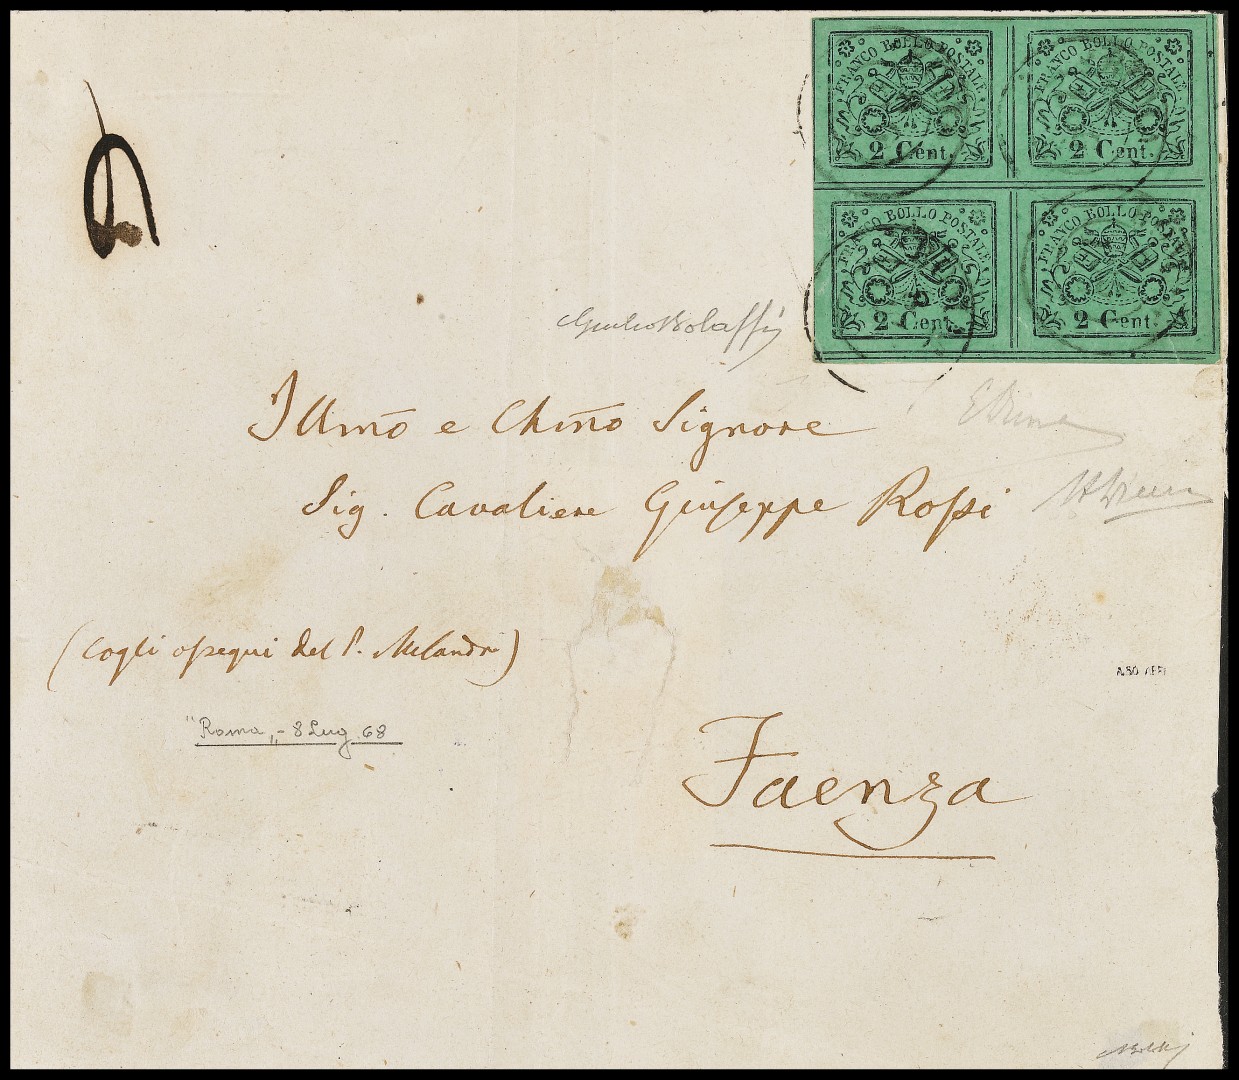 FRANCO BOLLO POSTALE
2 Cent.
FRANCO BOLLO POSTALE
2 Cent.
FRANCO BOLLO POSTALE
2 Cent.
FRANCO BOLLO POSTALE
2 Cent.
Giulio Bolaffi
Illmo e Chmo Signore
EDiena
Sig. Cavaliere Giuseppe Rossi
(cogli ossequi del P. Melandri)
"Roma„ - 8 Lug. 68
Faenza